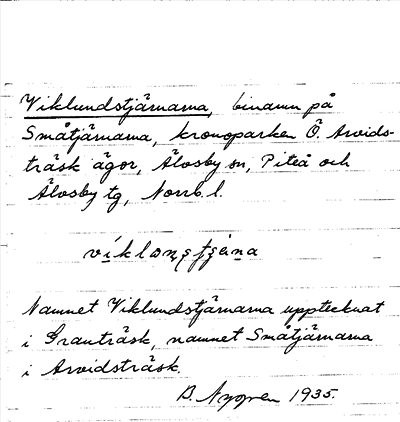 Viklundstjärnarna, binamn på
Småtjärnarna, kronoparken Ö. Arvids-
träsk ägor, Älvsby sn, Piteå och
Älvsby tg, Norrb. l.
Namnet Viklundstjärnarna upptecknat
i Granträsk, namnet Småtjärnarna
i Arvidsträsk.
D. Nygren 1935.